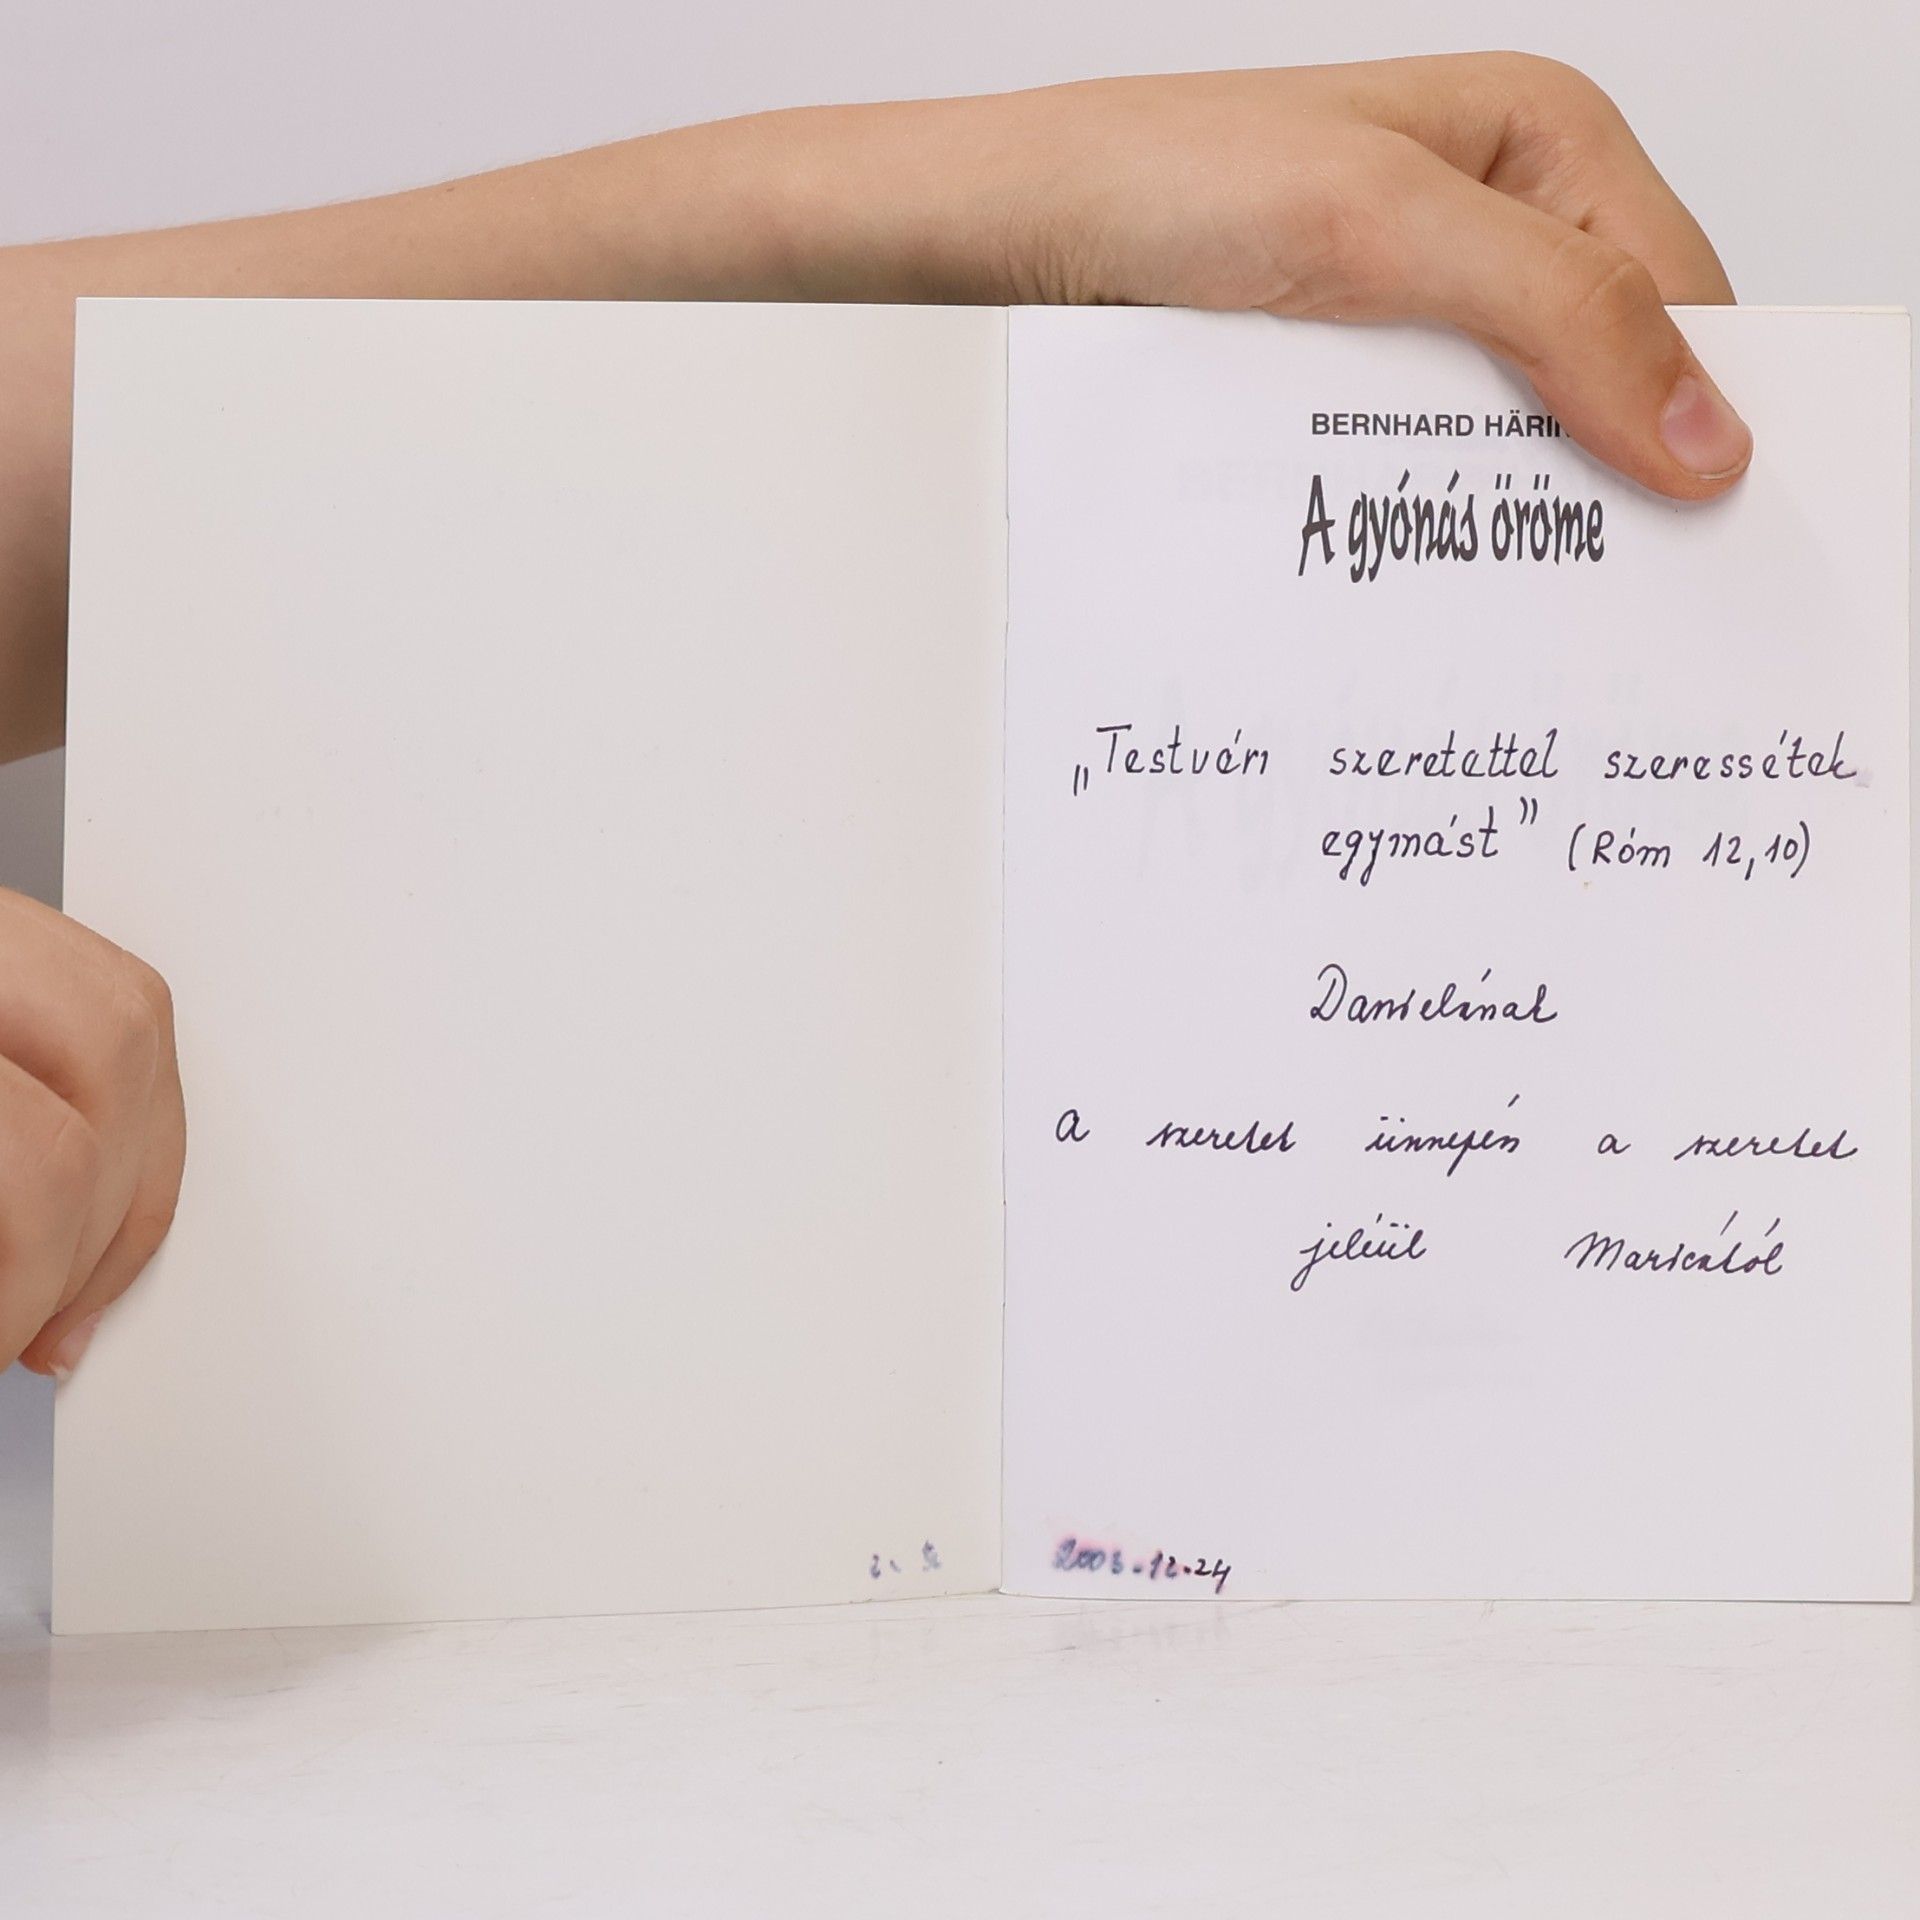 BERNHARD HÄRI
A gyónás öröme
„Testvéri szeretettel szeressétek
egymást” (Róm 12,10)
Danielának
a szeretet ünnepén a szeretet
jeléül Maricától
2003.12.24